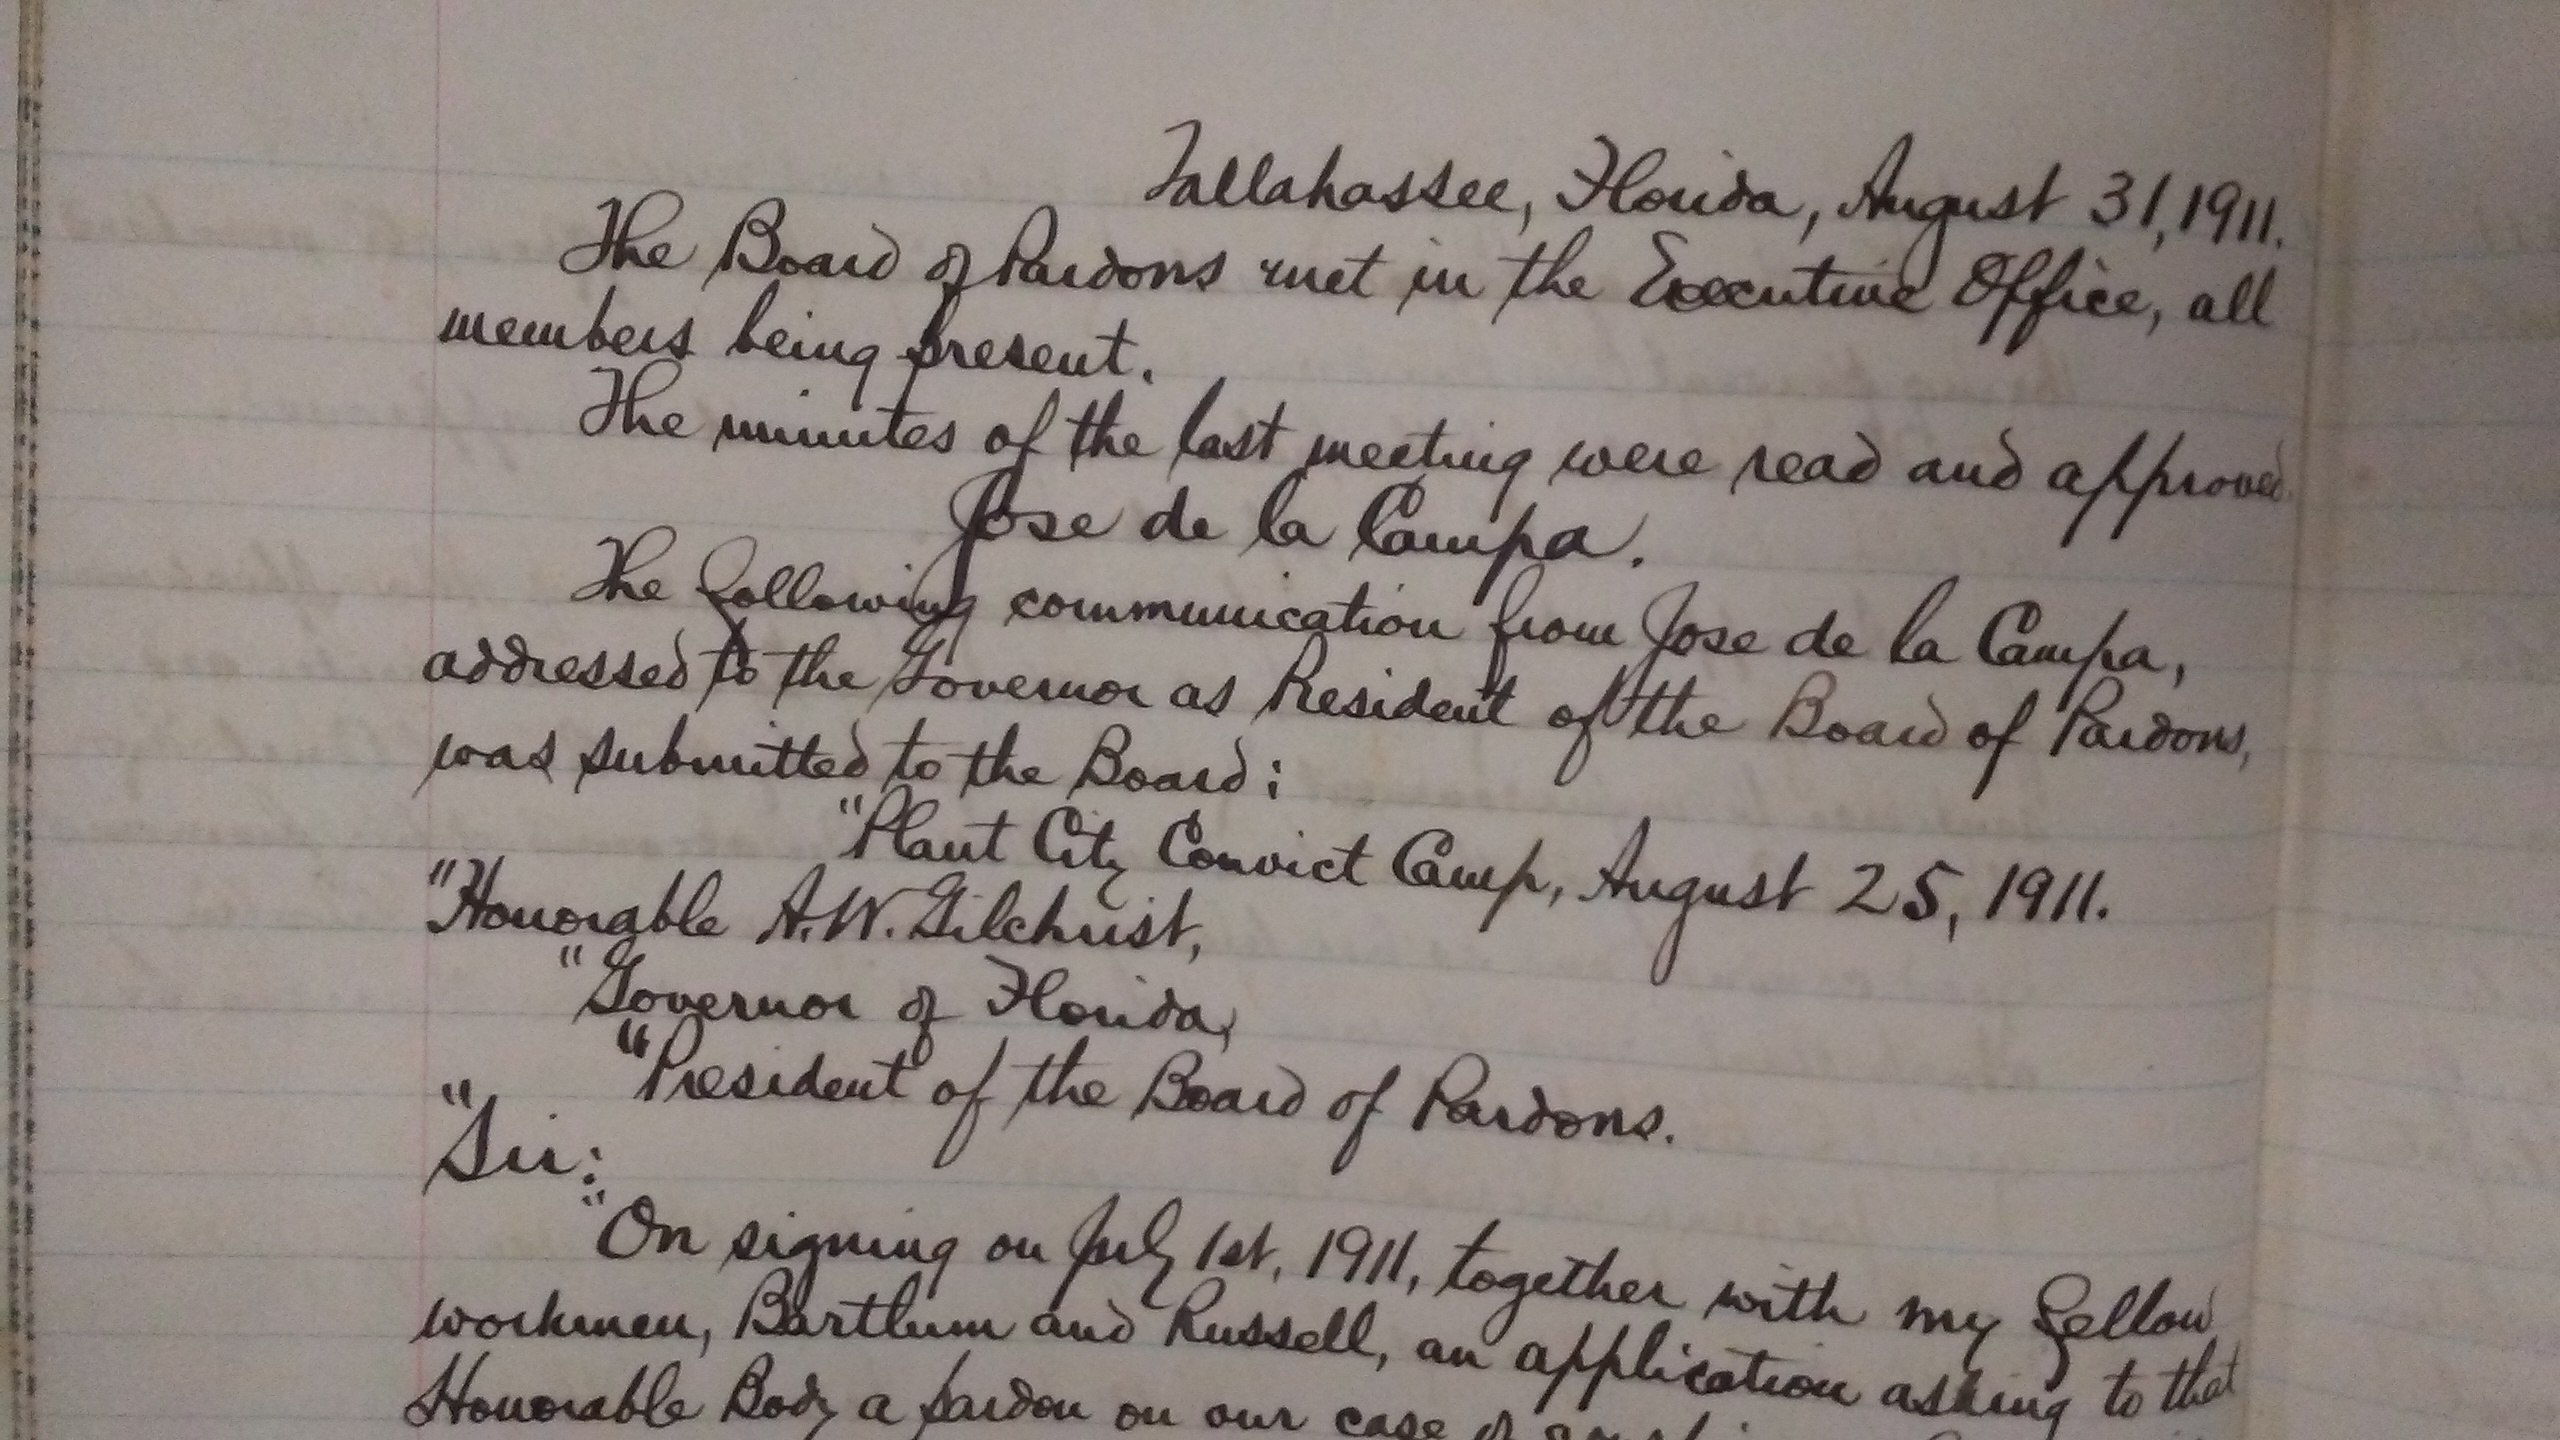 Tallahassee, Florida, August 31, 1911.
The Board of Pardons met in the Executive Office, all
members being present.
The minutes of the last meeting were read and approved.
Jose de la Campa.
The following communication from Jose de la Campa,
addressed to the Governor as President of the Board of Pardons,
was submitted to the Board:
"Plant City Convict Camp, August 25, 1911.
"Honorable A. W. Gilchrist,
"Governor of Florida,
"President of the Board of Pardons.
"Sir:
"On signing on July 1st, 1911, together with my fellow
workmen, Bartlum and Russell, an application asking to that
Honorable Body a pardon on our case of